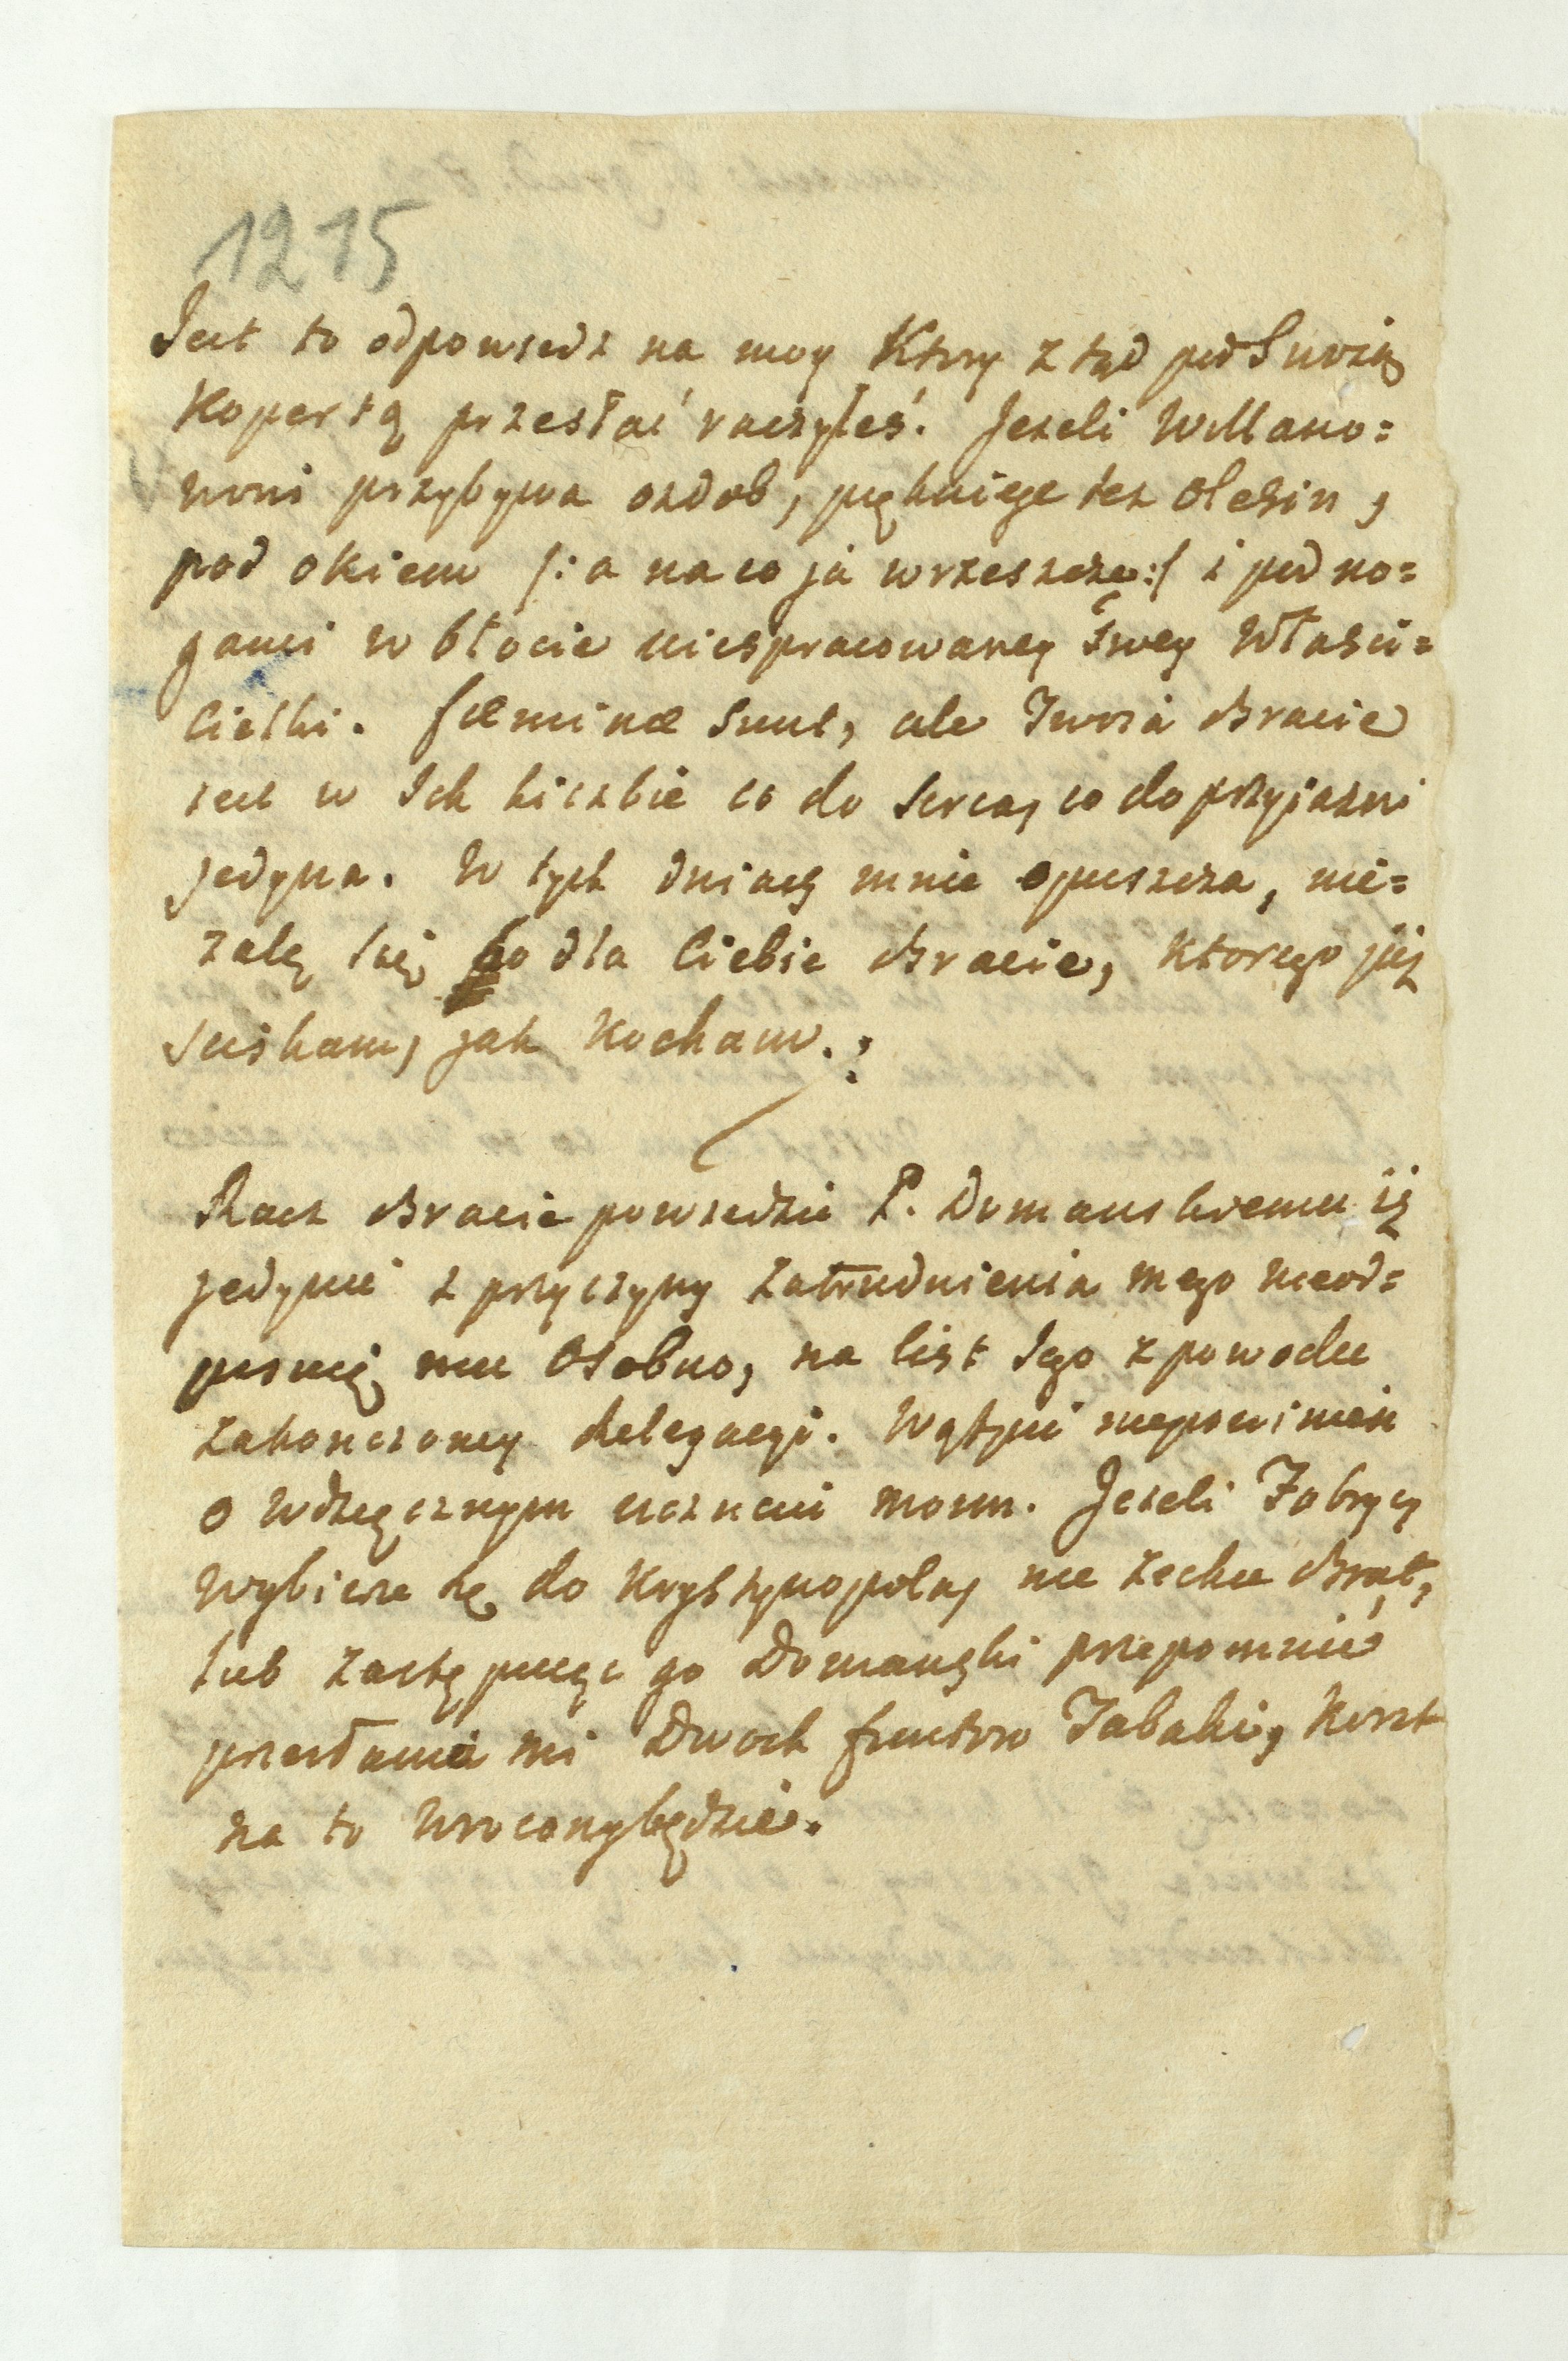 1215
Jest to odpowiedz na moy Ktory z tąd pod Swoią
Kopertą przesłać raczyłeś. Jezeli Willano=
wowi przybywa ozdob, pięknieje tez Olesin,
pod okiem /: a na co ja wrzeszczę :/ i pod no=
gami w błocie niespracowaney Swey Właści=
cielki. fœminæ sunt, ale Twoia Bracie
iest w Ich liczbie co do serca, co do przyjazni
jedyna. W tych dniach mnie opuszcza, nie=
zalę się bo dla Ciebie Bracie, ktorego jej
sciskam, jak Kocham.
Racz Bracie powiedzieć P. Domanskiemu iż
jedynie z przyczyny zatrudnienia mego nieod=
pisuię mu Osobno, na list Jego z powodu
zakonczoney delegacyi. Wątpić niepowinien
o wdzięcznym uczuciu moim. Jezeli Fabrycy
wybierze się do Krystynopola, nie zechce Brat,
lub zastępuięc go Domanski przepomnić
przesłania mi Dwoch funtow Tabaki, Koszt
na to wrocony będzie.